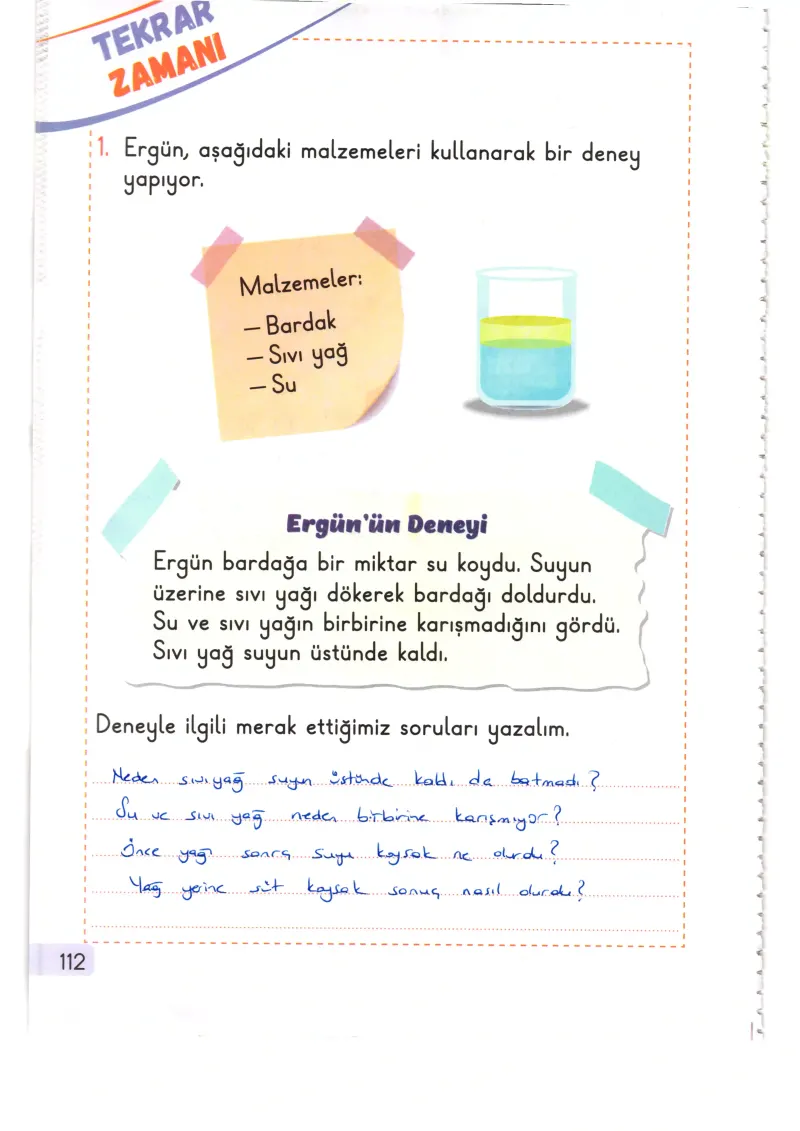 TEKRAR
ZAMANI
1. Ergün, aşağıdaki malzemeleri kullanarak bir deney
yapıyor.
Malzemeler:
– Bardak
– Sıvı yağ
– Su
Ergün'ün Deneyi
Ergün bardağa bir miktar su koydu. Suyun
üzerine sıvı yağı dökerek bardağı doldurdu.
Su ve sıvı yağın birbirine karışmadığını gördü.
Sıvı yağ suyun üstünde kaldı.
Deneyle ilgili merak ettiğimiz soruları yazalım.
Neden sıvı yağ suyun üstünde kaldı da batmadı?
Su ve sıvı yağ neden birbirine karışmıyor?
Önce yağı sonra suyu koysak ne olurdu?
Yağ yerine süt koysak sonuç nasıl olurdu?
112